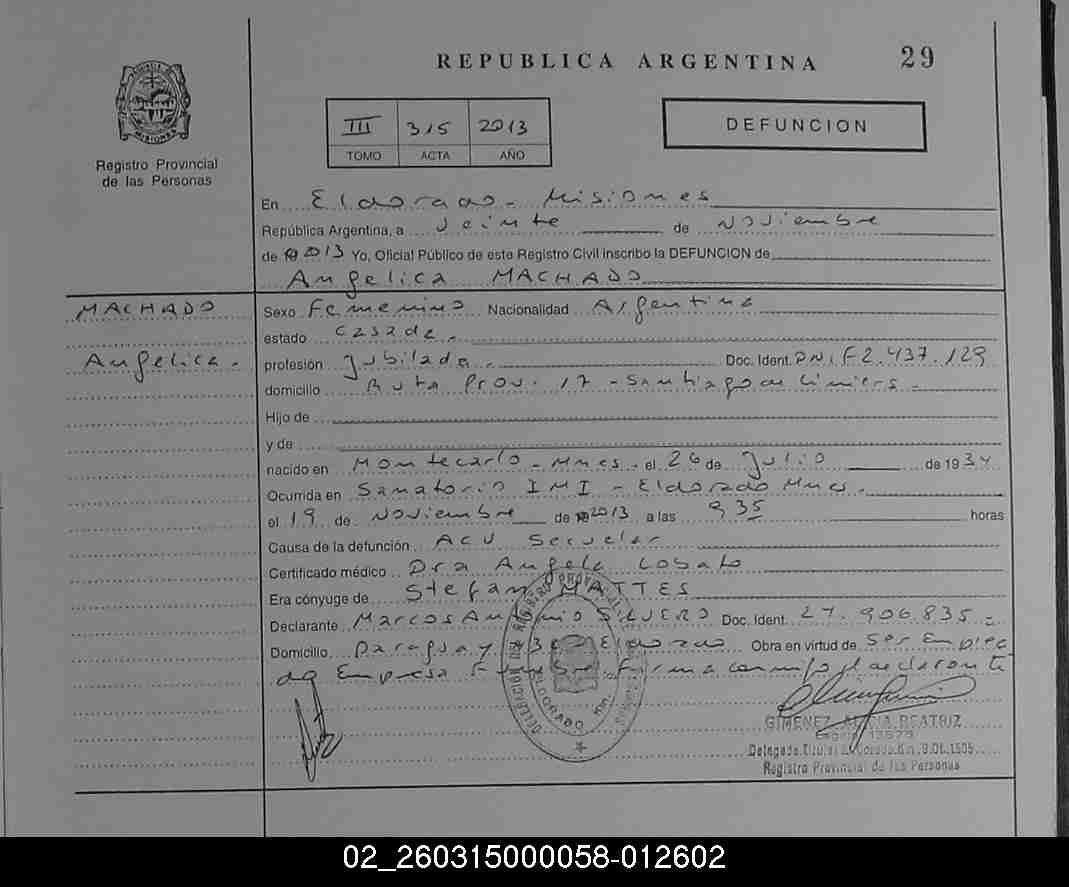 REPUBLICA ARGENTINA 29
PROVINCIA DE MISIONES
Registro Provincial
de las Personas
III 315 2013
TOMO ACTA AÑO
DEFUNCION
En Eldorado - Misiones
República Argentina, a Veinte de Noviembre
de 2013 Yo, Oficial Público de este Registro Civil inscribo la DEFUNCION de
Angelica MACHADO
MACHADO
Angelica.
Sexo Femenino Nacionalidad Argentina
estado Casada.
profesión Jubilada. Doc. Ident. DNI F2.437.129
domicilio Ruta Prov. 17 - Santiago de Liniers.
Hijo de
y de
nacido en Montecarlo - Mnes. el 26 de Julio de 1934
Ocurrida en Sanatorio IMI - Eldorado Mnes.
el 19 de Noviembre de 2013 a las 9 35 horas
Causa de la defunción ACV Secuelar
Certificado médico Dra Angela Lobato
Era cónyuge de Stefan MATTES
Declarante Marcos Antonio SILVERO Doc. Ident. 27.906.835
Domicilio Paraguay Eldorado Obra en virtud de Ser Emplea
do Empresa Firma conmigo el declarante
GIMENEZ ALICIA BEATRIZ
Registro Provincial de las Personas
02_260315000058-012602